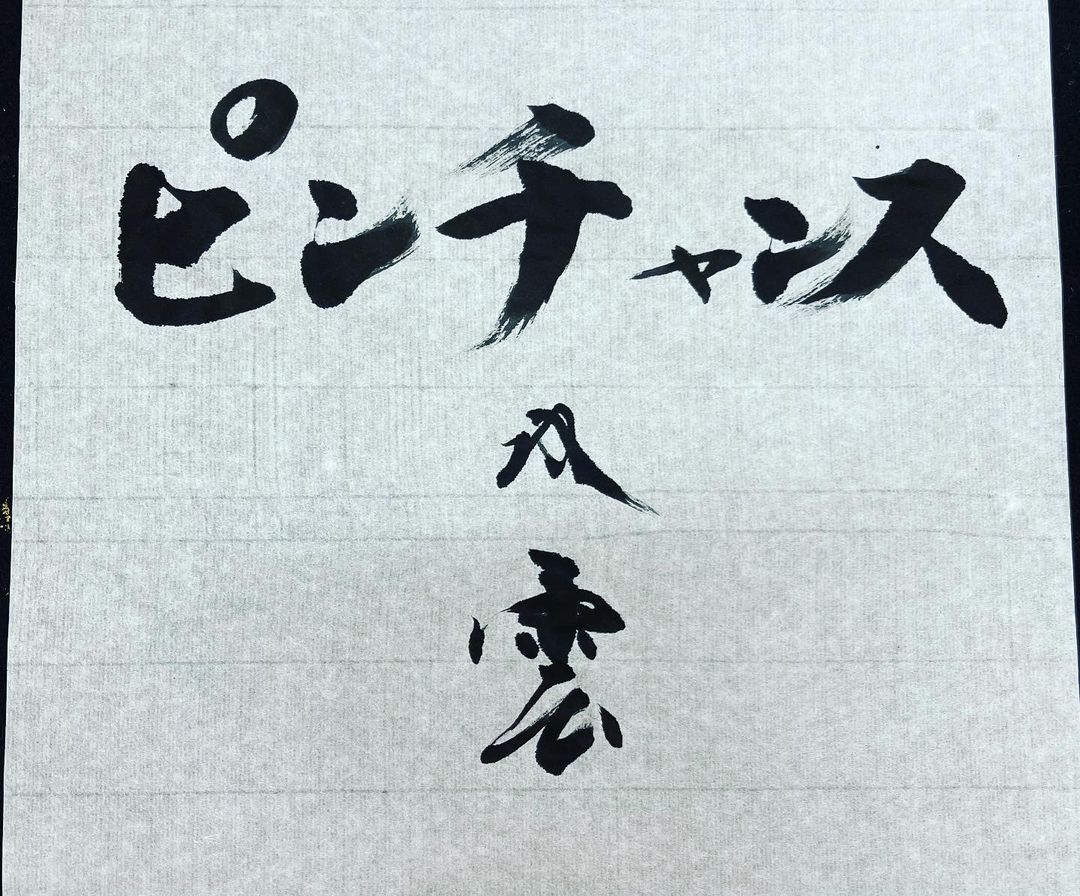 ピンチャンス
風
雲